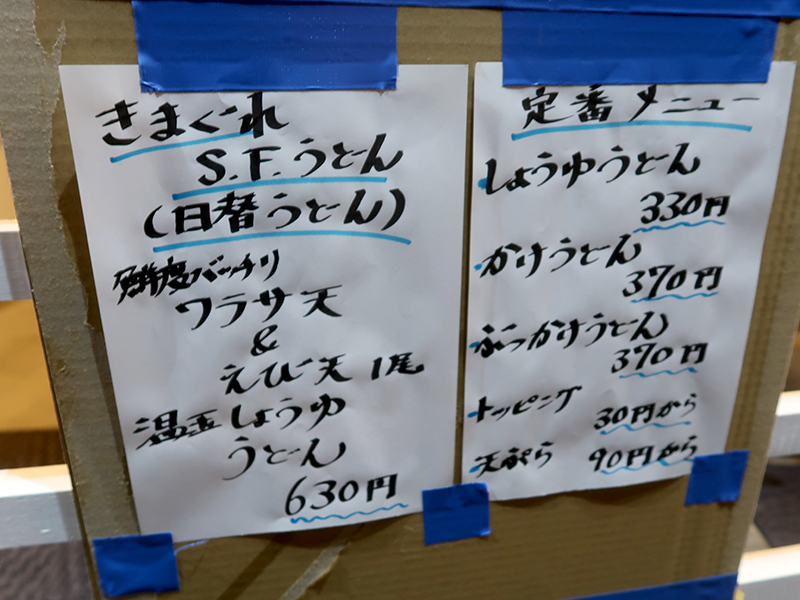 きまぐれ
S.F.うどん
(日替うどん)
鮮度バッチリ
ワラサ天
&
えび天 1尾
温玉しょうゆ
うどん
630円
定番メニュー
・しょうゆうどん
330円
・かけうどん
370円
・ぶっかけうどん
370円
・トッピング 30円から
・天ぷら 90円から